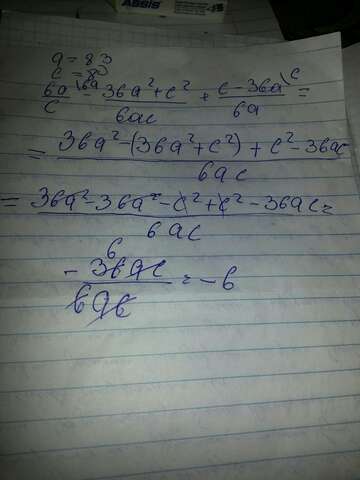 ASSIS
a = 83
c = 80
6a/c \6a - 36a²+c²/6ac + c-36a/6a \c =
= 36a²-(36a²+c²)+c²-36ac/6ac
= 36a²-36a²-c²+c²-36ac/6ac =
6
-36ac/6ac = -6